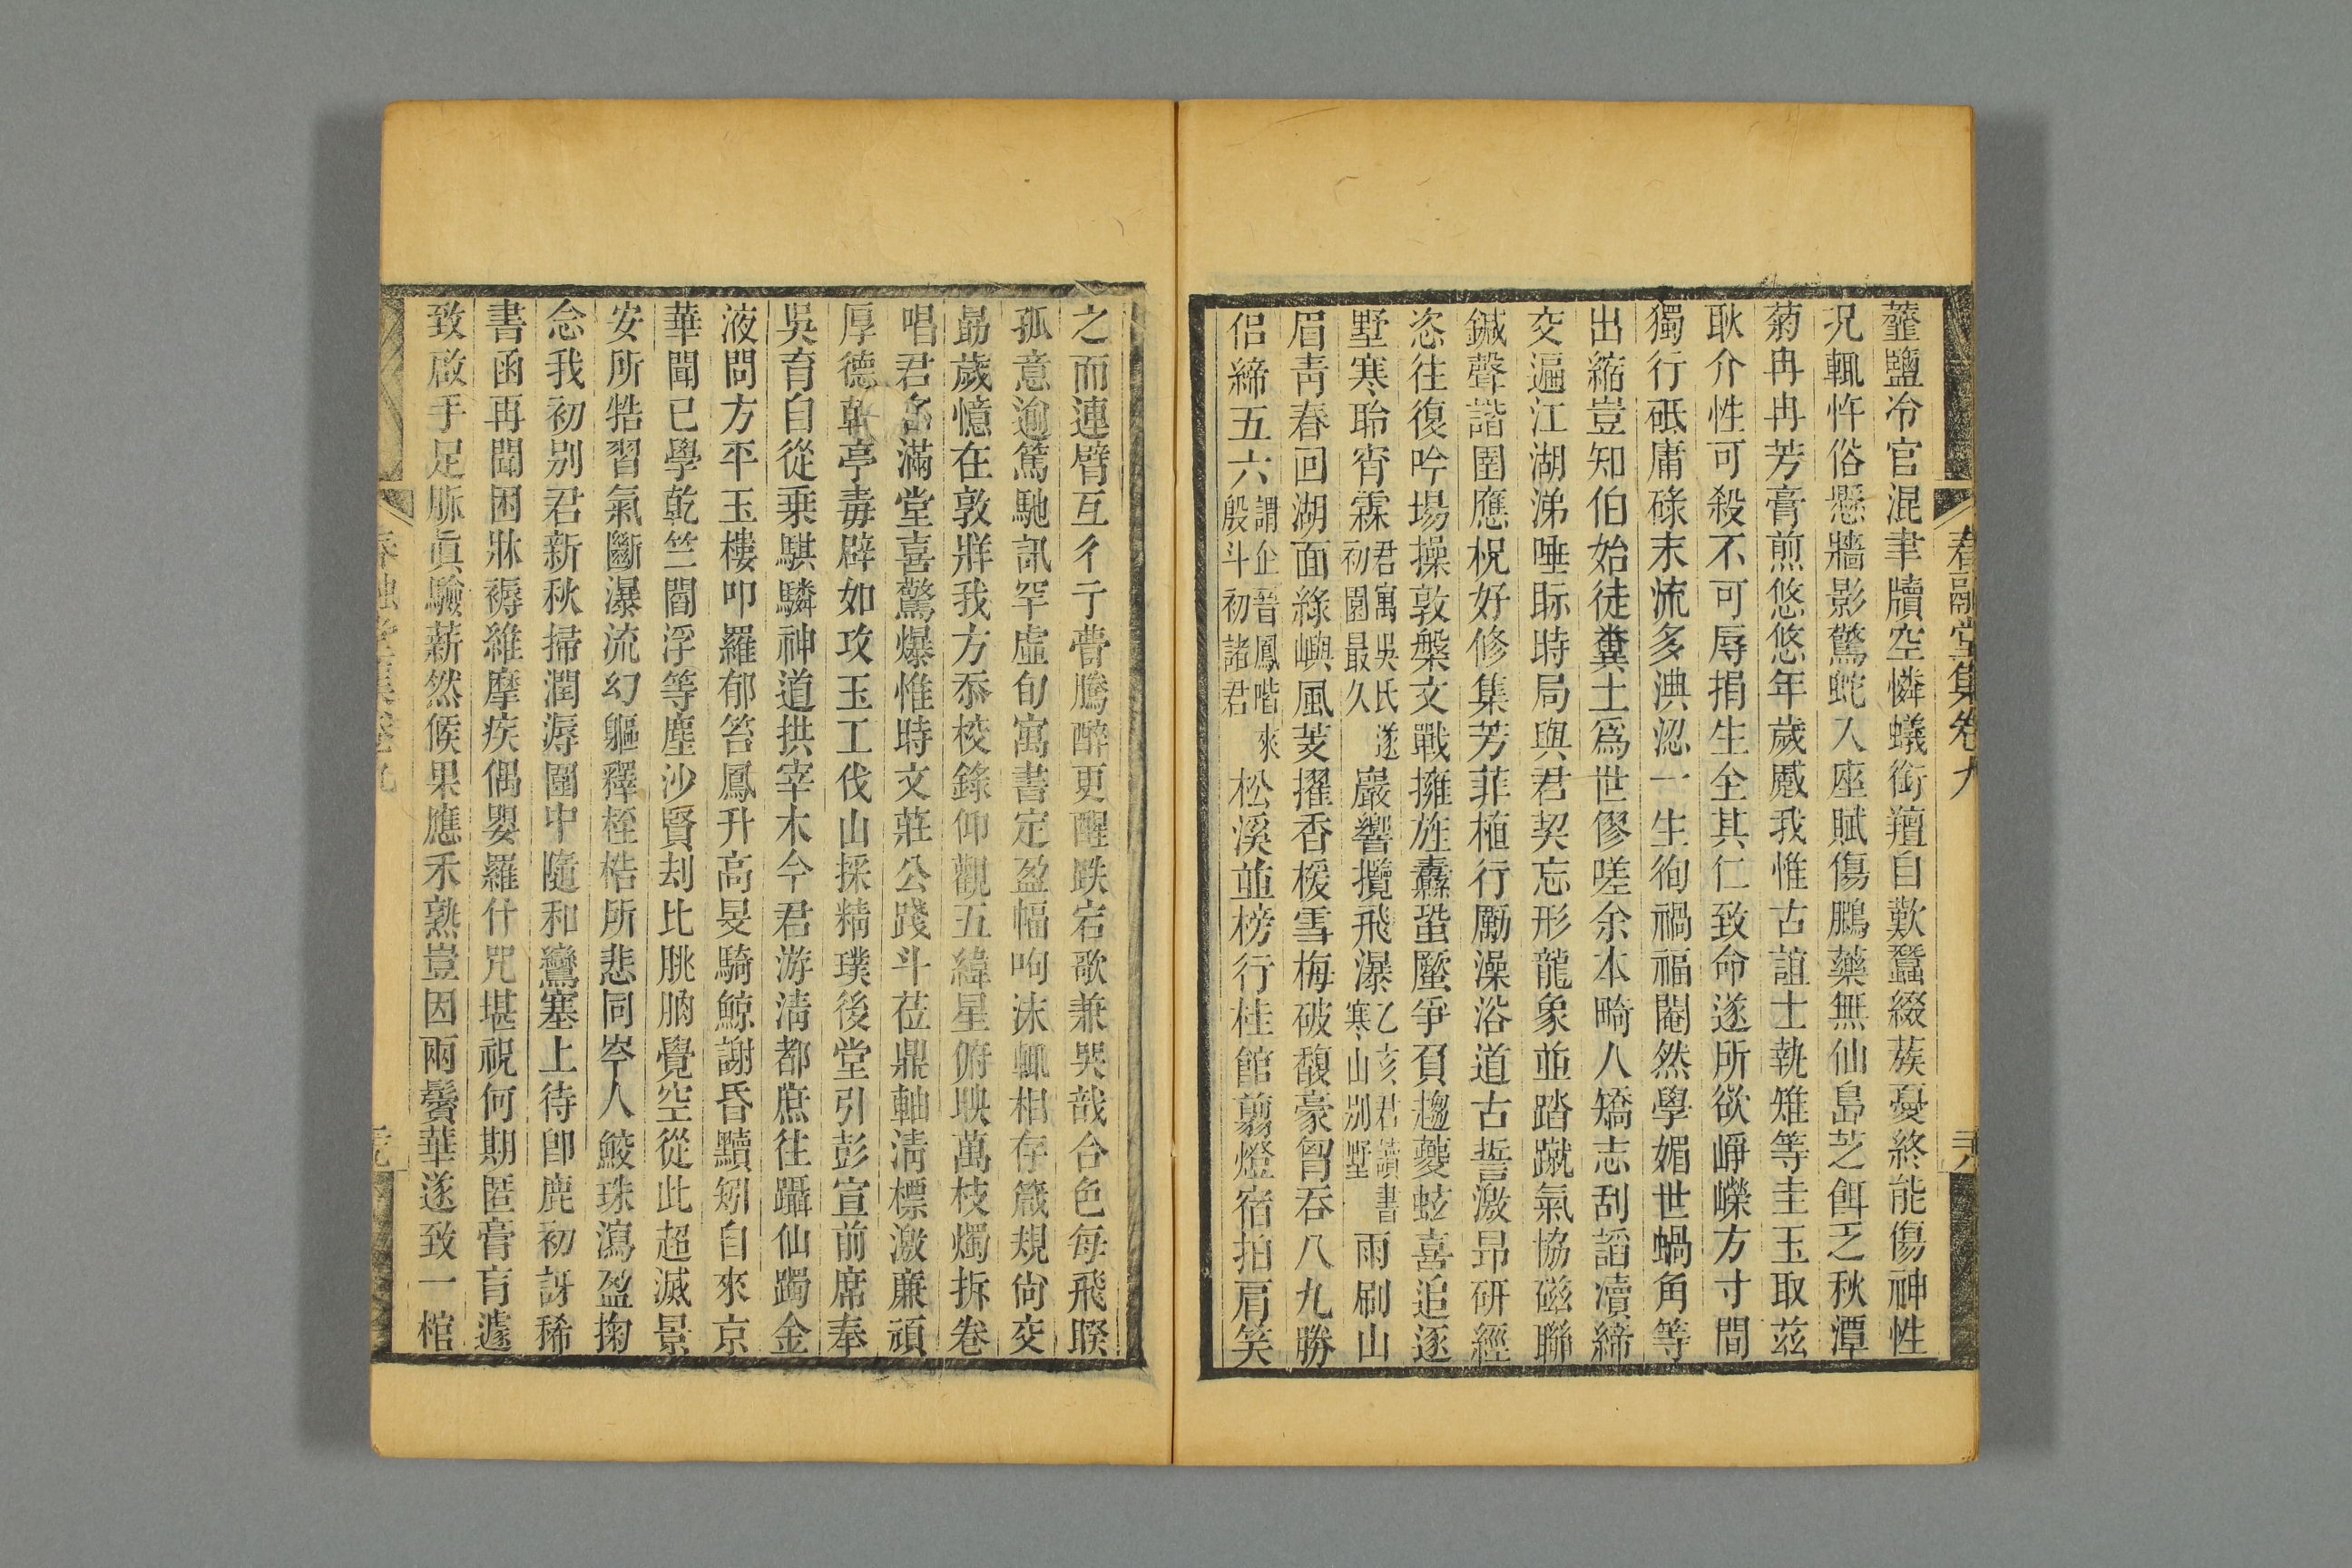 春融堂集卷九
虀鹽冷官混聿牘空憐蟻銜羶自歎蠶綴蔟憂終能傷神性
况輒忤俗懸牆影驚蛇入座賦傷鵩藥無仙島芝餌乏秋潭
菊冉冉芳膏煎悠悠年歲慼我惟古誼士執雉等圭玉取茲
耿介性可殺不可辱捐生全其仁致命遂所欲崢嶸方寸間
獨行砥庸碌末流多淟涊一生徇禍福閹然學媚世蝸角等
出縮豈知伯始徒糞土爲世僇嗟余本畸人矯志刮謟瀆締
交遍江湖涕唾眎時局與君契忘形龍象並踏蹴氣協磁聯
鍼聲諧圉應柷好修集芳菲植行勵澡浴道古誓激昂研經
恣往復吟場操敦槃文戰擁旌纛蛩蟨爭負趨夔蚿喜追逐
墅寒聆宵霖君寓吳氏遂初園最久巖響攬飛瀑乙亥君讀書寒山別墅雨刷山
眉靑春回湖面綠嶼風芰擢香榱雪梅破馥豪胷吞八九勝
侶締五六謂企晉鳳喈來殷斗初諸君松溪並榜行桂館翦燈宿拍肩笑
之而連臂互彳亍瞢騰醉更醒跌宕歌兼哭哉合色每飛睽
孤意逾篤馳訊罕虛旬寓書定盈幅呴沫輒相存箴規尙交
勗歲憶在敦牂我方忝校錄仰觀五緯星俯映萬枝燭拆卷
唱君名滿堂喜驚爆惟時文莊公踐斗莅鼎軸淸標激廉頑
厚德亭毒辟如攻玉工伐山採精璞後堂引彭宣前席奉
吳育自從乗騏驎神道拱宰木今君游淸都庶往躡仙躅金
液問方平玉樓叩羅郁笞鳳升高旻騎鯨謝昏黷矧自來京
華聞已學乾竺閻浮等塵沙賢刦比朓朒覺空從此超滅景
安所牿習氣斷瀑流幻軀釋桎梏所悲同岑人鮫珠瀉盈掬
念我初別君新秋掃潤溽圍中隨和鸞塞上待卽鹿初訝稀
書函再聞困牀褥維摩疾偶嬰羅什咒堪祝何期匿膏肓遽
致啟手足脈眞驗薪然候果應禾熟豈因兩鬢華遂致一棺